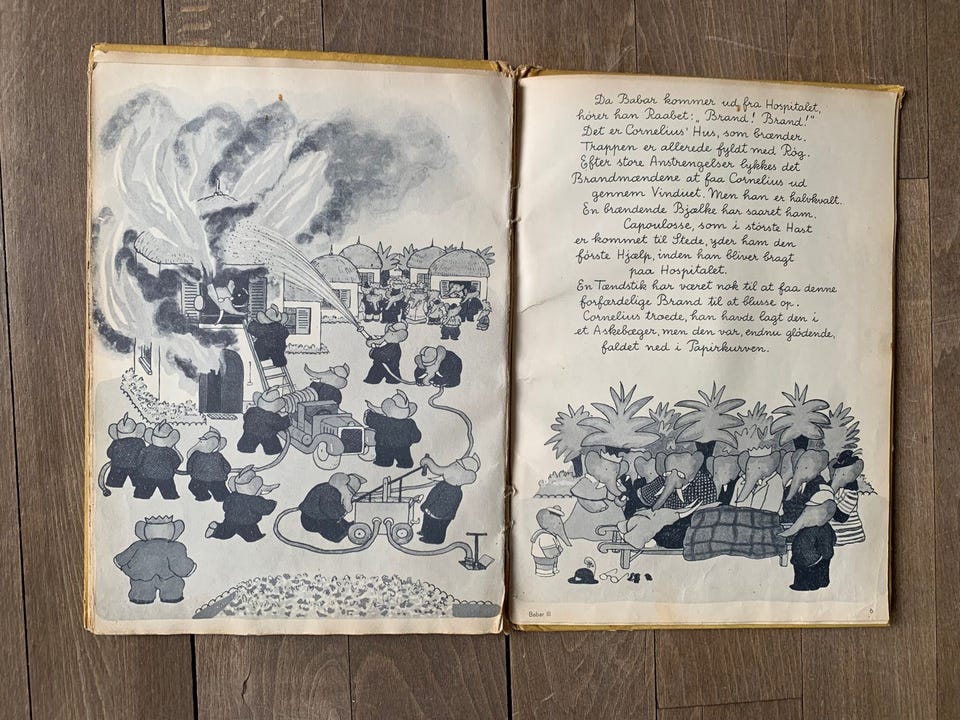 Da Babar kommer ud fra Hospitalet,
hører han Raabet: „Brand! Brand!"
Det er Cornelius' Hus, som brænder.
Trappen er allerede fyldt med Røg.
Efter store Anstrengelser lykkes det
Brandmændene at faa Cornelius ud
gennem Vinduet. Men han er halvkvalt.
En brændende Bjælke har saaret ham.
Capoulosse, som i største Hast
er kommet til Stede, yder ham den
første Hjælp, inden han bliver bragt
paa Hospitalet.
En Tændstik har været nok til at faa denne
forfærdelige Brand til at blusse op.
Cornelius troede, han havde lagt den i
et Askebæger, men den var, endnu glødende,
faldet ned i Papirkurven.
Babar III
6